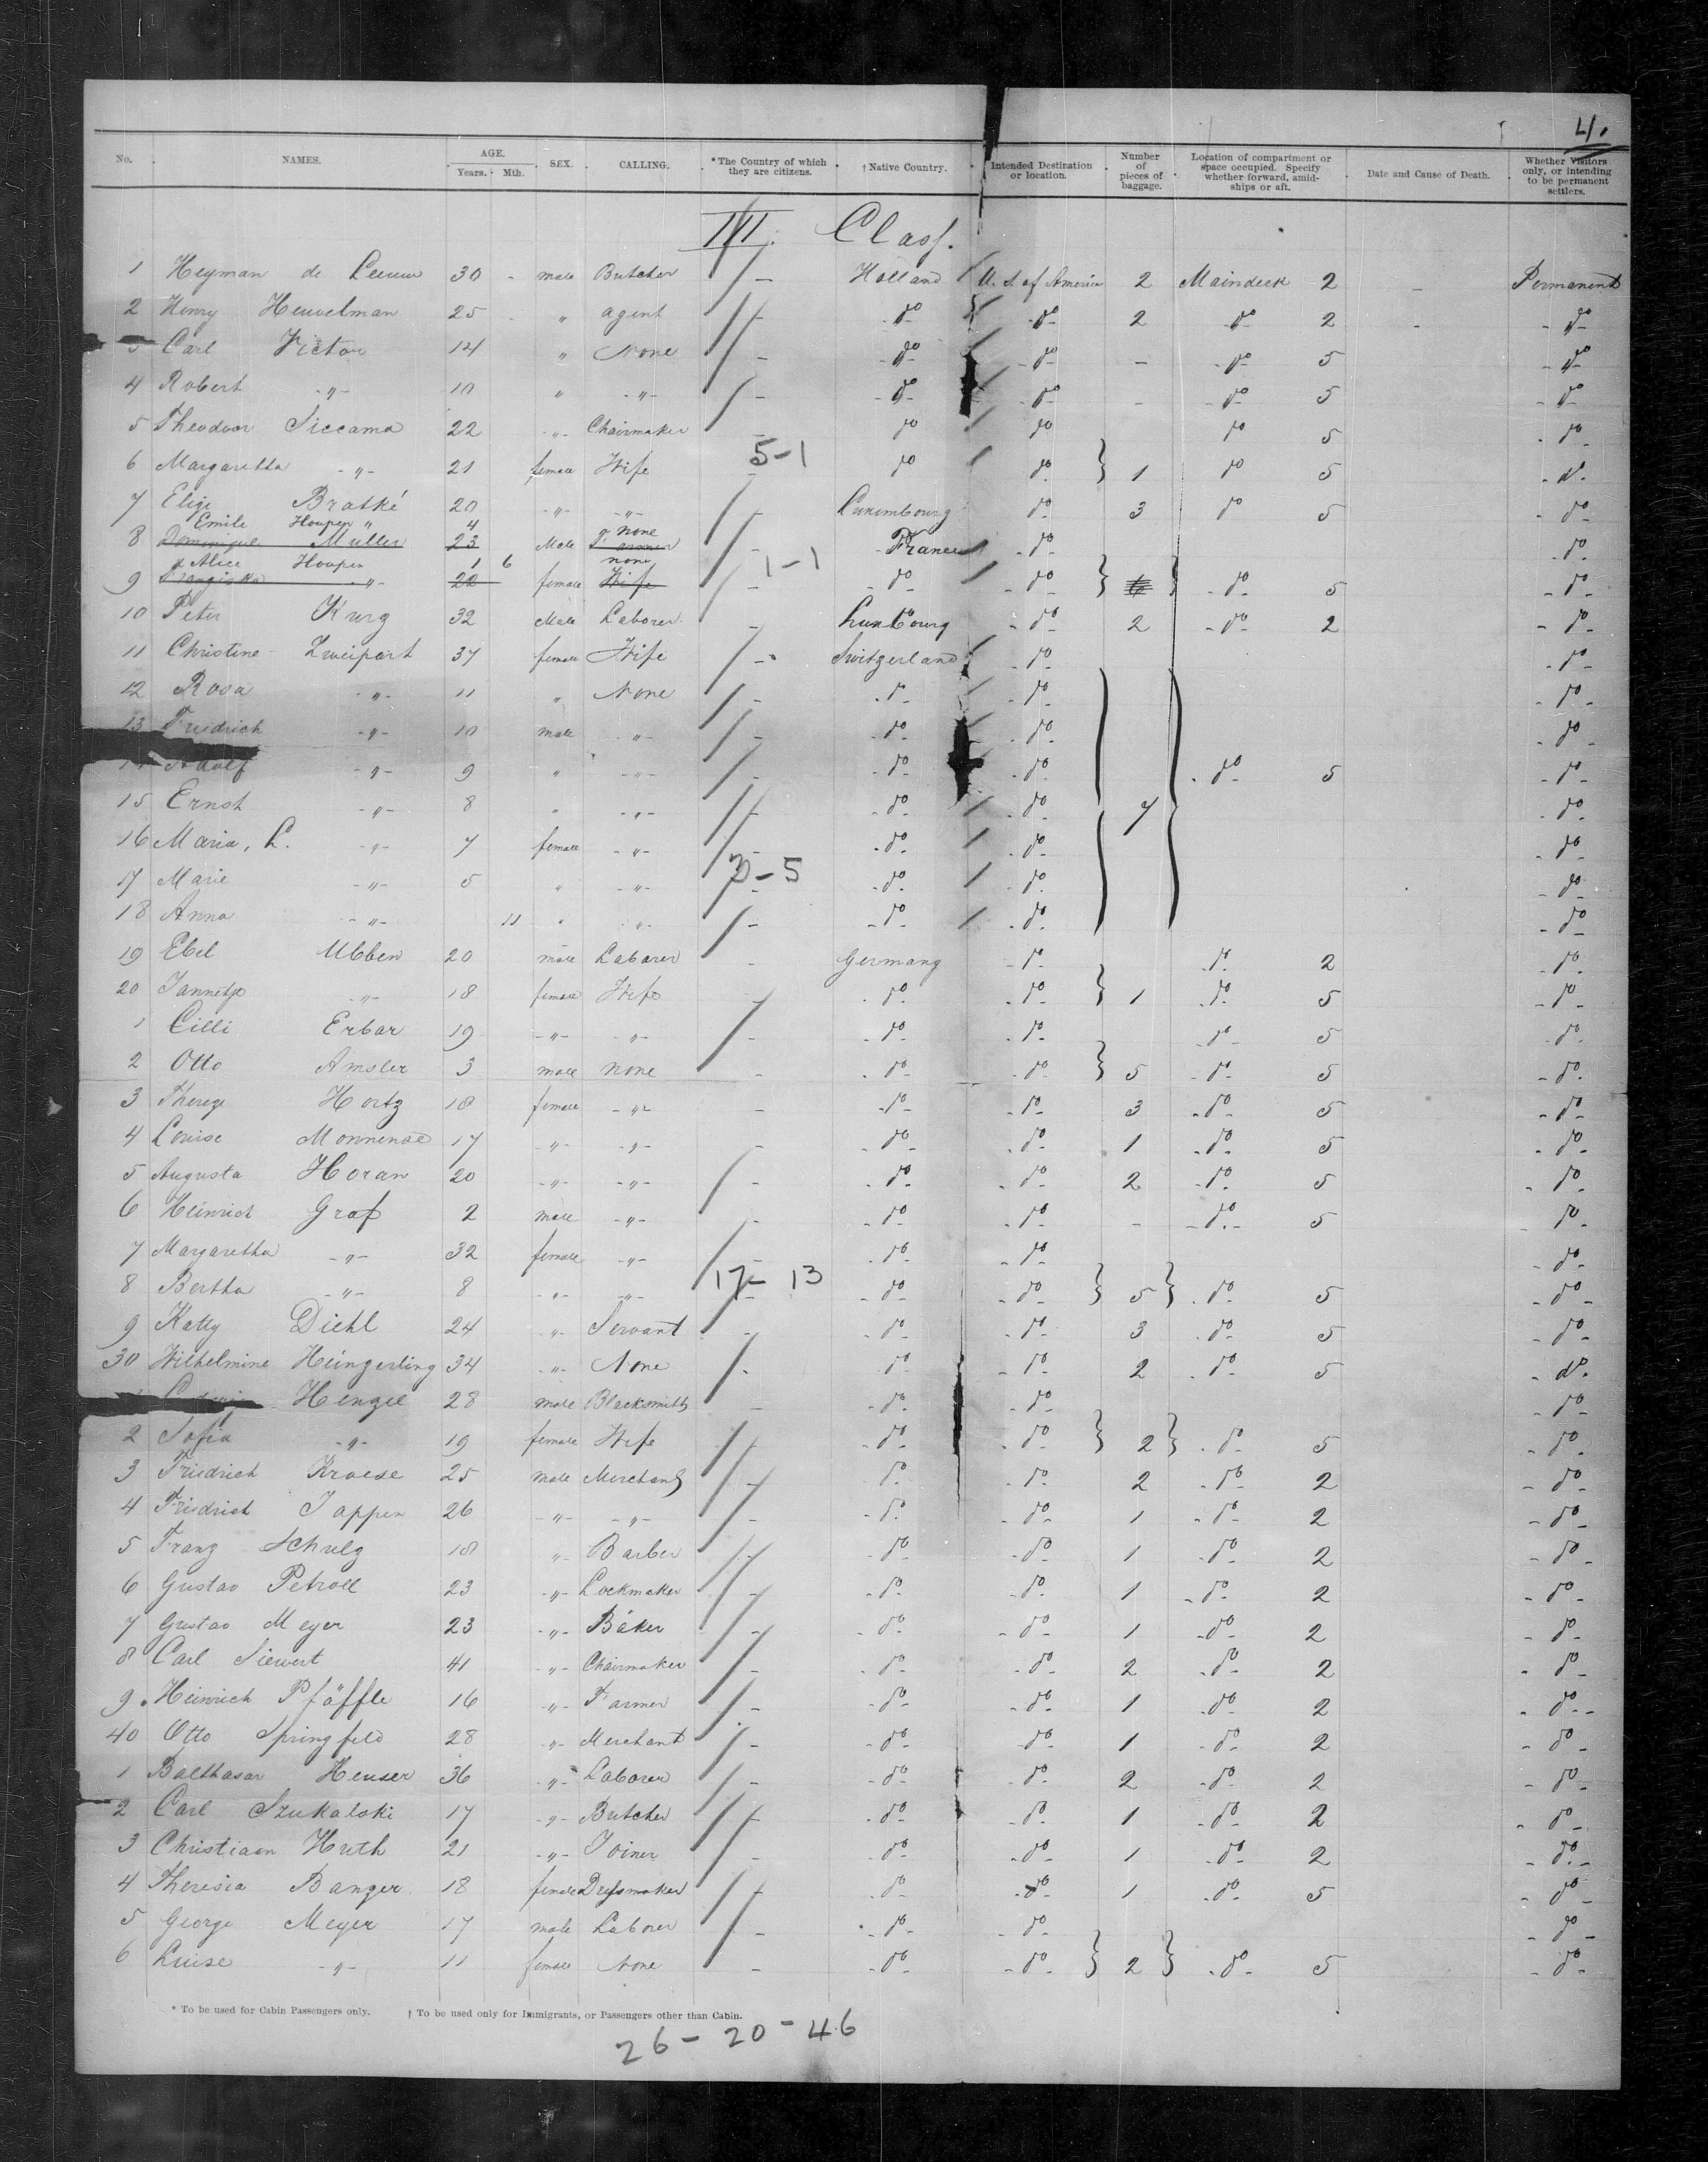 4.
No. NAMES. AGE. Years. Mth. SEX. CALLING. *The Country of which they are citizens. †Native Country. Intended Destination or location. Number of pieces of baggage. Location of compartment or space occupied. Specify whether forward, amidships or aft. Date and Cause of Death. Whether Visitors only, or intending to be permanent settlers.
III. Class.
1 Heyman de Leeuw 30 - male Butcher - Holland U. S. of America 2 Maindeck 2 - Permanent
2 Henry Heuvelman 25 - " agent - do do 2 do 2 - do
3 Carl Victor 14 " None - do do - do 5 do
4 Robert " 10 " " - do do - do 5 do
5 Theodoor Siccama 22 " Chairmaker - do do do 5 do
5-1
6 Margaretha " 21 female Wife - do do 1 do 5 do
7 Elige Bratké 20 " " - Luxembourg do 3 do 5 do
Emile Houpen " 4 none
8 Dominique Muller 23 Male Farmer - France do do
1-1
Alice Houpen 1 6 none
9 " 22 female Wife - do do 6 do 5 do
10 Peter Kurg 32 Male Laborer - Luxbourg do 2 do 2 do
11 Christine Zweipart 37 female Wife - Switzerland do do
12 Rosa " 11 " None - do do do
13 Friedrich " 10 male " - do do do
14 Adolf " 9 " " - do do do 5 do
15 Ernst " 8 " " - do do 7 do
16 Maria, L. " 7 female " - do do do
3-5
17 Marie " 5 " " - do do do
18 Anna " 11 " " - do do do
19 Ebel Ubben 20 male Laborer - Germany do do 2 do
20 Jannetje " 18 female Wife - do do 1 do 5 do
1 Cilli Erbar 19 " " - do do do 5 do
2 Otto Amsler 3 male none - do do 5 do 5 do
3 Therege Hortz 18 female " - do do 3 do 5 do
4 Louise Monnense 17 " " - do do 1 do 5 do
5 Augusta Horan 20 " " - do do 2 do 5 do
6 Heinrich Graf 2 male " - do do - do 5 do
7 Margaretha " 32 female " - do do do
17-13
8 Bertha " 8 " " - do do 5 do 5 do
9 Katty Diehl 24 " Servant - do do 3 do 5 do
30 Wilhelmine Heingerling 34 " None - do do 2 do 5 do
Hengel 28 male Blacksmith - do do do
2 Sofia " 19 female Wife - do do 2 do 5 do
3 Friedrich Kroese 25 male Merchant - do do 2 do 2 do
4 Friedrich Jappen 26 " " - do do 1 do 2 do
5 Franz Schulz 18 " Barber - do do 1 do 2 do
6 Gustav Petroll 23 " Lockmaker - do do 1 do 2 do
7 Gustav Meyer 23 " Bäker - do do 1 do 2 do
8 Carl Siewert 41 " Chairmaker - do do 2 do 2 do
9 Heinrich Pfäffle 16 " Farmer - do do 1 do 2 do
40 Otto Springfeld 28 " Merchant - do do 1 do 2 do
1 Balthasar Heuser 36 " Laborer - do do 2 do 2 do
2 Carl Szukalski 17 " Butcher - do do 1 do 2 do
3 Christiaan Huth 21 " Joiner - do do 1 do 2 do
4 Theresia Banger 18 female Dressmaker - do do 1 do 5 do
5 George Meyer 17 male Laborer - do do do
6 Luise " 11 female None - do do 2 do 5 do
* To be used for Cabin Passengers only. † To be used only for Immigrants, or Passengers other than Cabin.
26-20-46